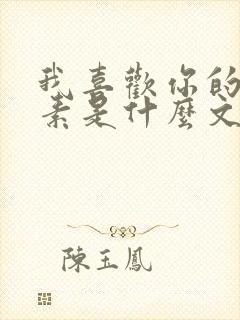 我喜歡你的
素是什麼文
陳玉鳳